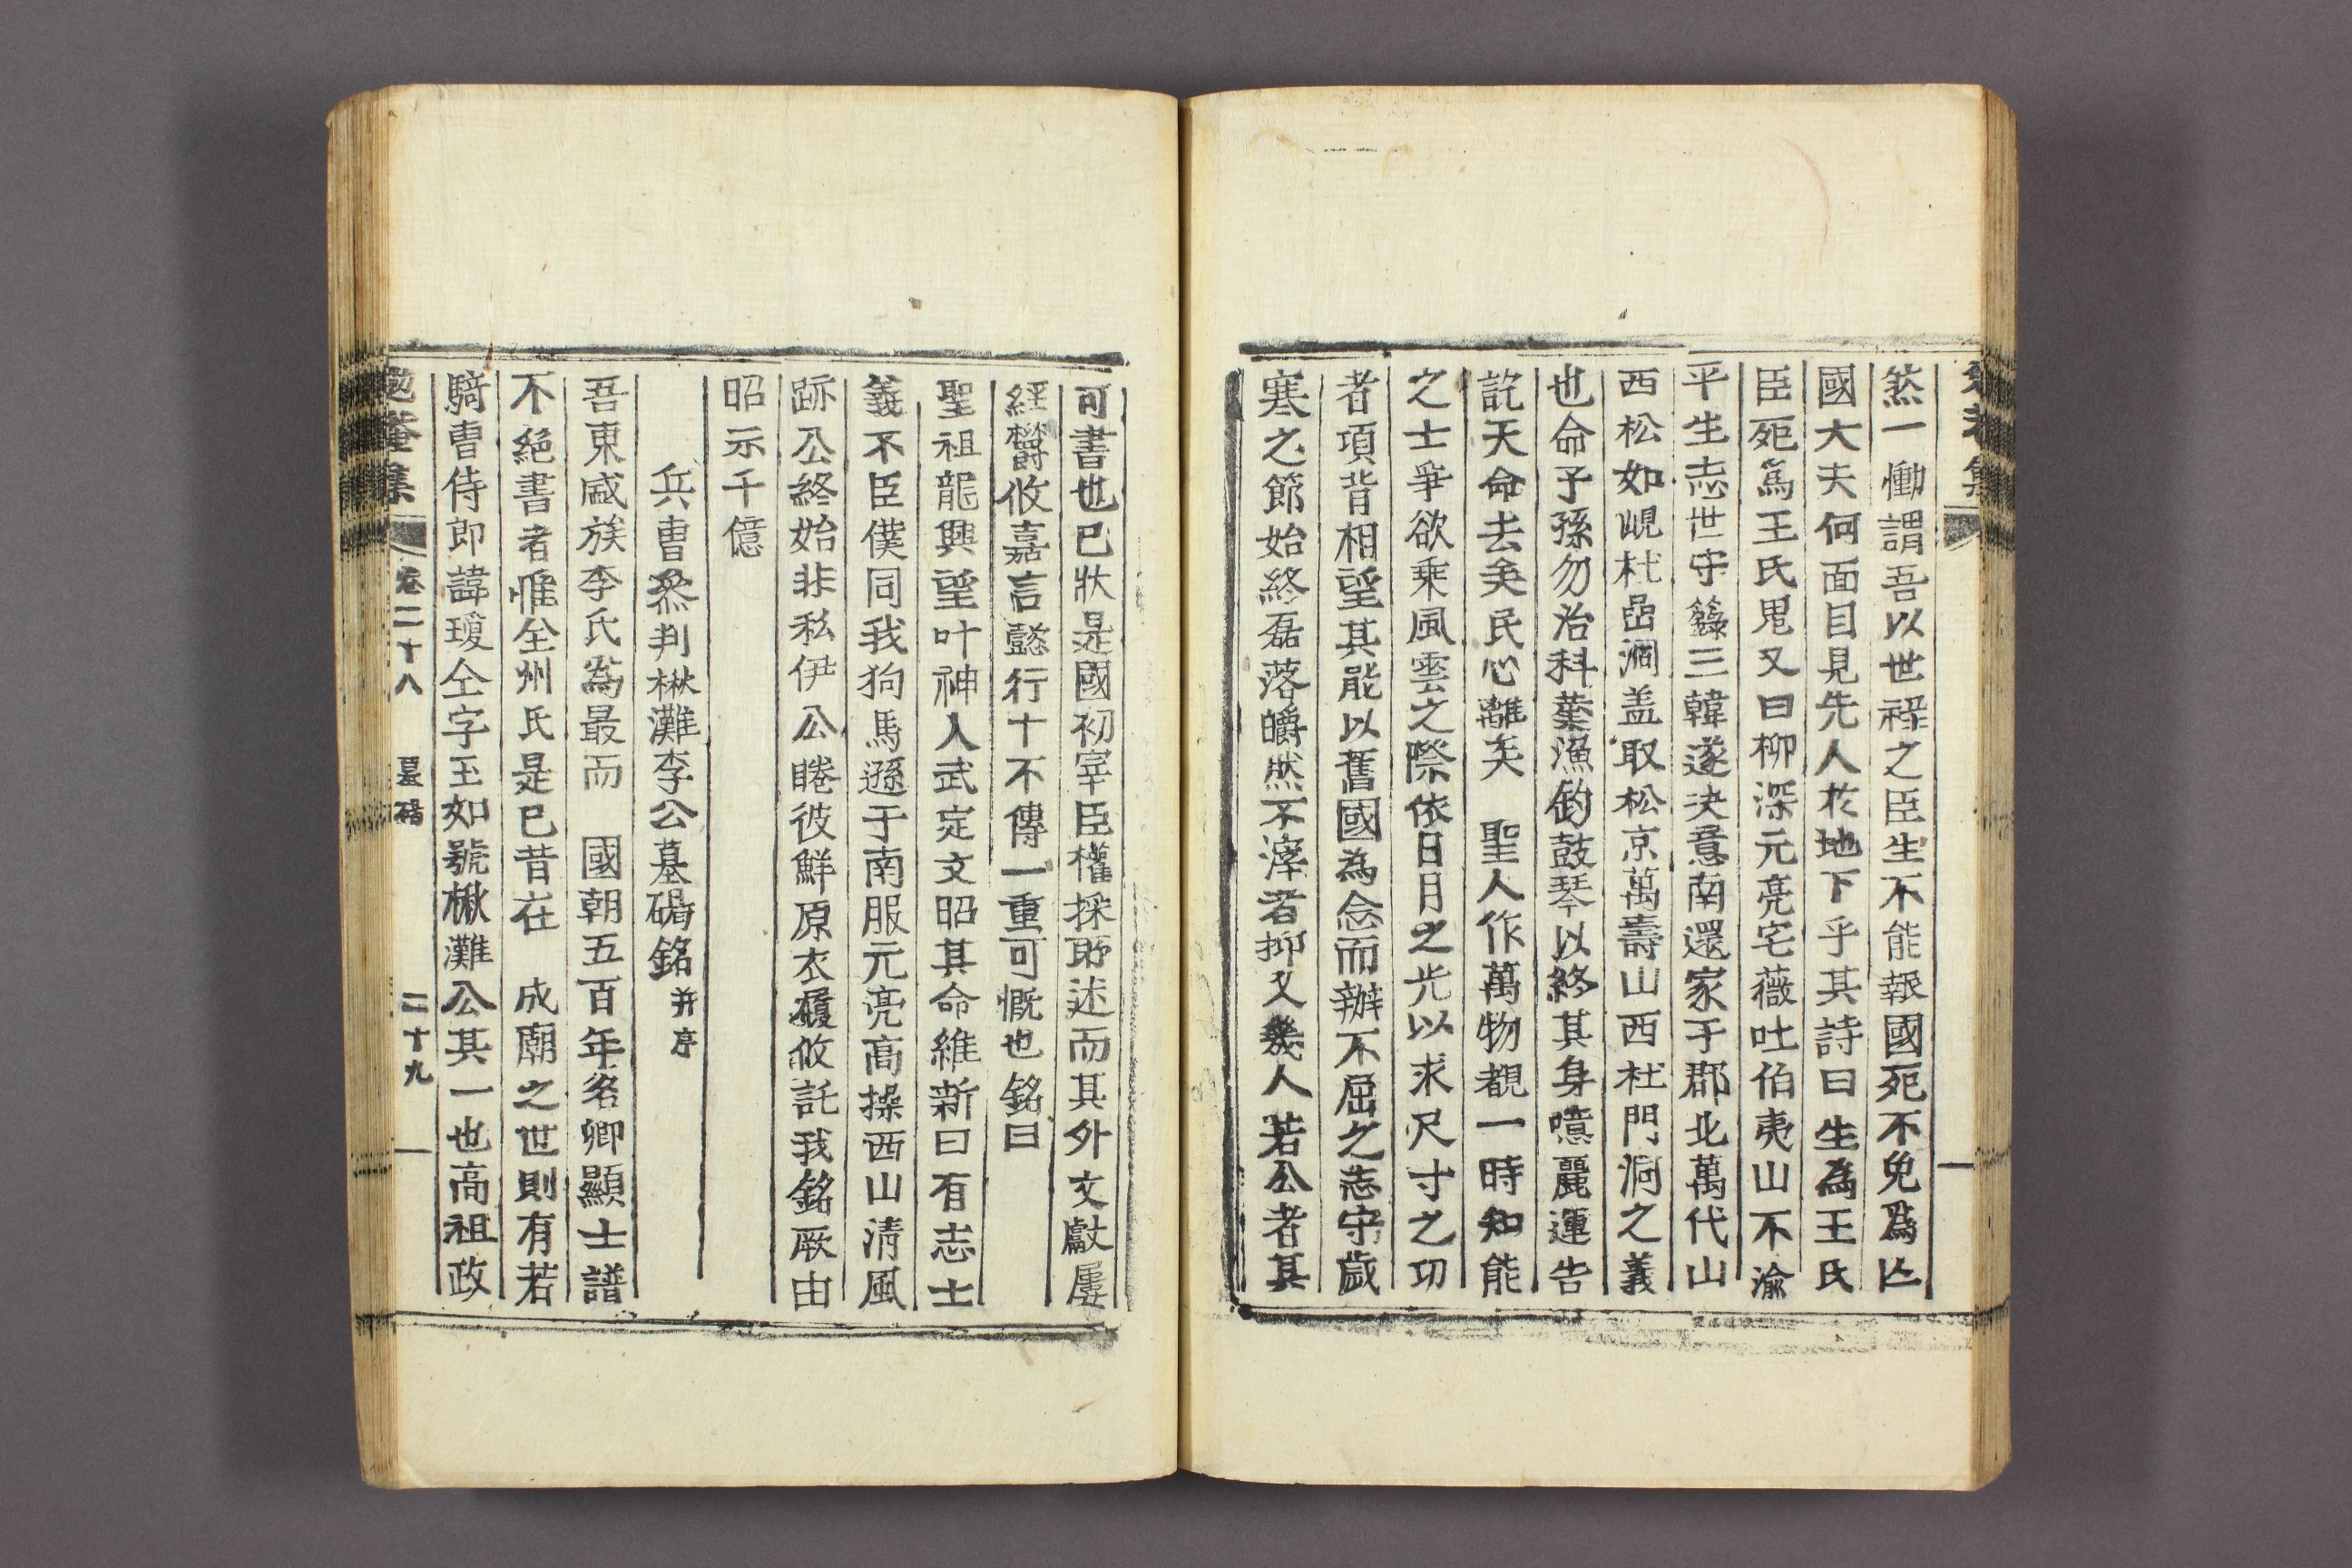 然一慟謂吾以世祿之臣生不能報國死不免爲亾
國大夫何面目見先人於地下乎其詩曰生為王氏
臣死爲王氏鬼又曰柳深元亮宅薇吐伯夷山不渝
平生志世守籙三韓遂决意南還家于郡北萬代山
西松如峴杜嵒洞盖取松京萬壽山西杜門洞之義
也命子孫勿治科業漁釣鼓琴以終其身噫麗運告
訖天命去矣民心離矣 聖人作萬物覩一時知能
之士爭欲乘風雲之際依日月之光以求尺寸之功
者項背相望其能以舊國為念而辦不屈之志守歲
寒之節始終磊落皭然不滓者抑又幾人若公者其
可書也已狀是國初宰臣權採所述而其外文獻屢
經欝攸嘉言懿行十不傳一重可慨也銘曰
聖祖龍興望叶神人武定文昭其命維新曰有志士
義不臣僕同我狗馬遜于南服元亮高操西山清風
跡公終始非私伊公睠彼鮮原衣履攸託我銘厥由
昭示千億
兵曹叅判楸灘李公墓碣銘 并序
吾東咸族李氏為最而 國朝五百年名卿顯士譜
不絕書者惟全州氏是已昔在 成廟之世則有若
騎曹侍郞諱瓊仝字玉如號楸灘公其一也高祖政
勉菴集 卷二十八 墓碣 二十九